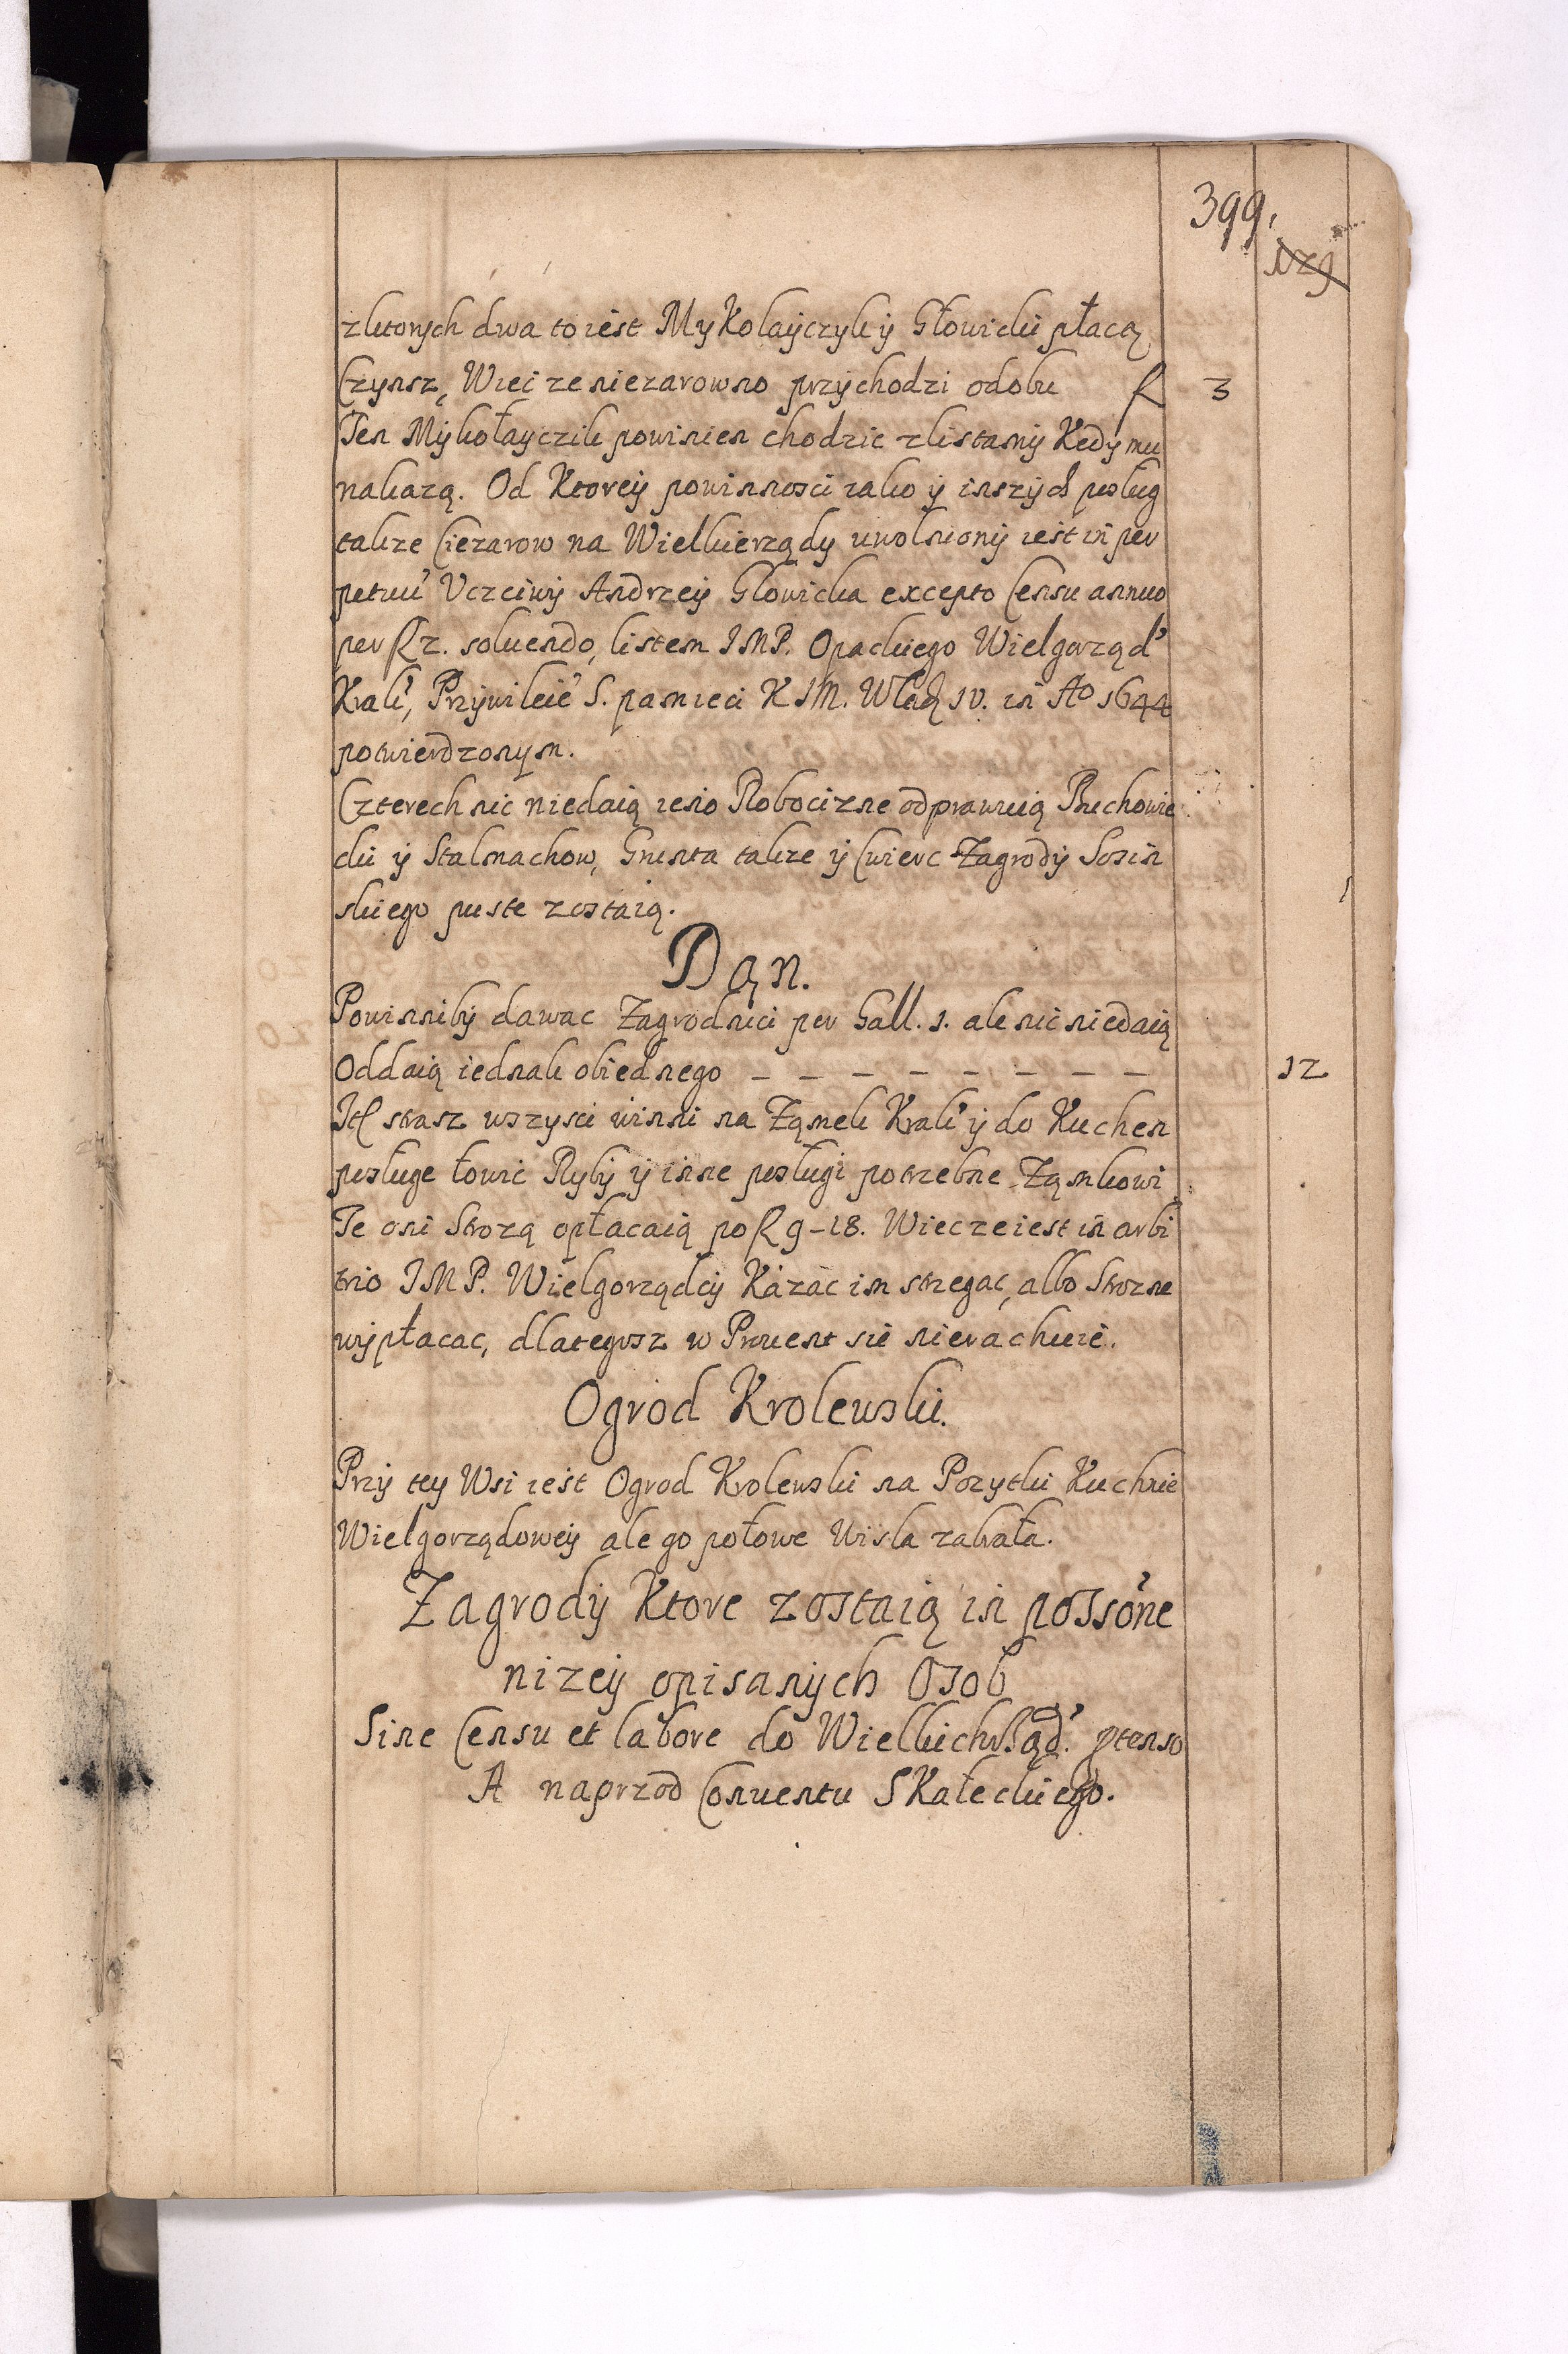 399.
129
zktorych dwa to iest MyKolayczyk ÿ Głowicki płacą
Czynsz, Wiec ze niezarowno przychodzi od obu f 3
Ten Mÿkołayczik powinien chodzic zlistamÿ Kedÿ mu
nakazą. Od Ktorey powinnosci iako ÿ inszÿch posług
takze Ciezarow na Wielkierządy uwolnionÿ iest in per
petuu' Uczciwÿ Andrzeÿ Głowicka excepto Censu annuo
per f 2. soluendo, listem IMP. Opackiego Wielgorząd'
Krak', Przÿwileie' S. pamieci KIM. Wład IV. in Ao 1644
potwierdzonym.
Czterech nic niedaią ieno Robocizne odprawuią Puchowie
cki ÿ Stalmachow, Grunta takze ÿ Cwierc Zagrodÿ Sosin
skiego puste zostaią.
Dąn.
Powinnibÿ dawac Zagrodnici per Gall. 1. ale nic niedaią
Oddaią iednak obiednego – – – – – – – – 12
It strasz wszysci winni na Ząmek Krak' ÿ do Kuchen
posługe łowic Rybÿ ÿ inne posługi potrzebne Ząmkowi
Te oni Strozą opłacaią po f 9–18. Wiec ze iest in arbi
trio IMP. Wielgorządcÿ Kázác im strzegac, albo Strozne
wÿpłacac, dlategosz w Prouent sie nierachuie.
Ogrod Krolewski.
Przÿ tey Wsi iest Ogrod Krolewski na Pozytki Kuchnie
Wielgorządoweÿ ale go połowe Wisla zabrała.
Zagrodÿ Ktore zostaią in possone
nizeÿ opisanÿch Osob
Sine Censu et labore do WielkichRząd'. ptenso
A naprzod Conuentu SKałeckiego.